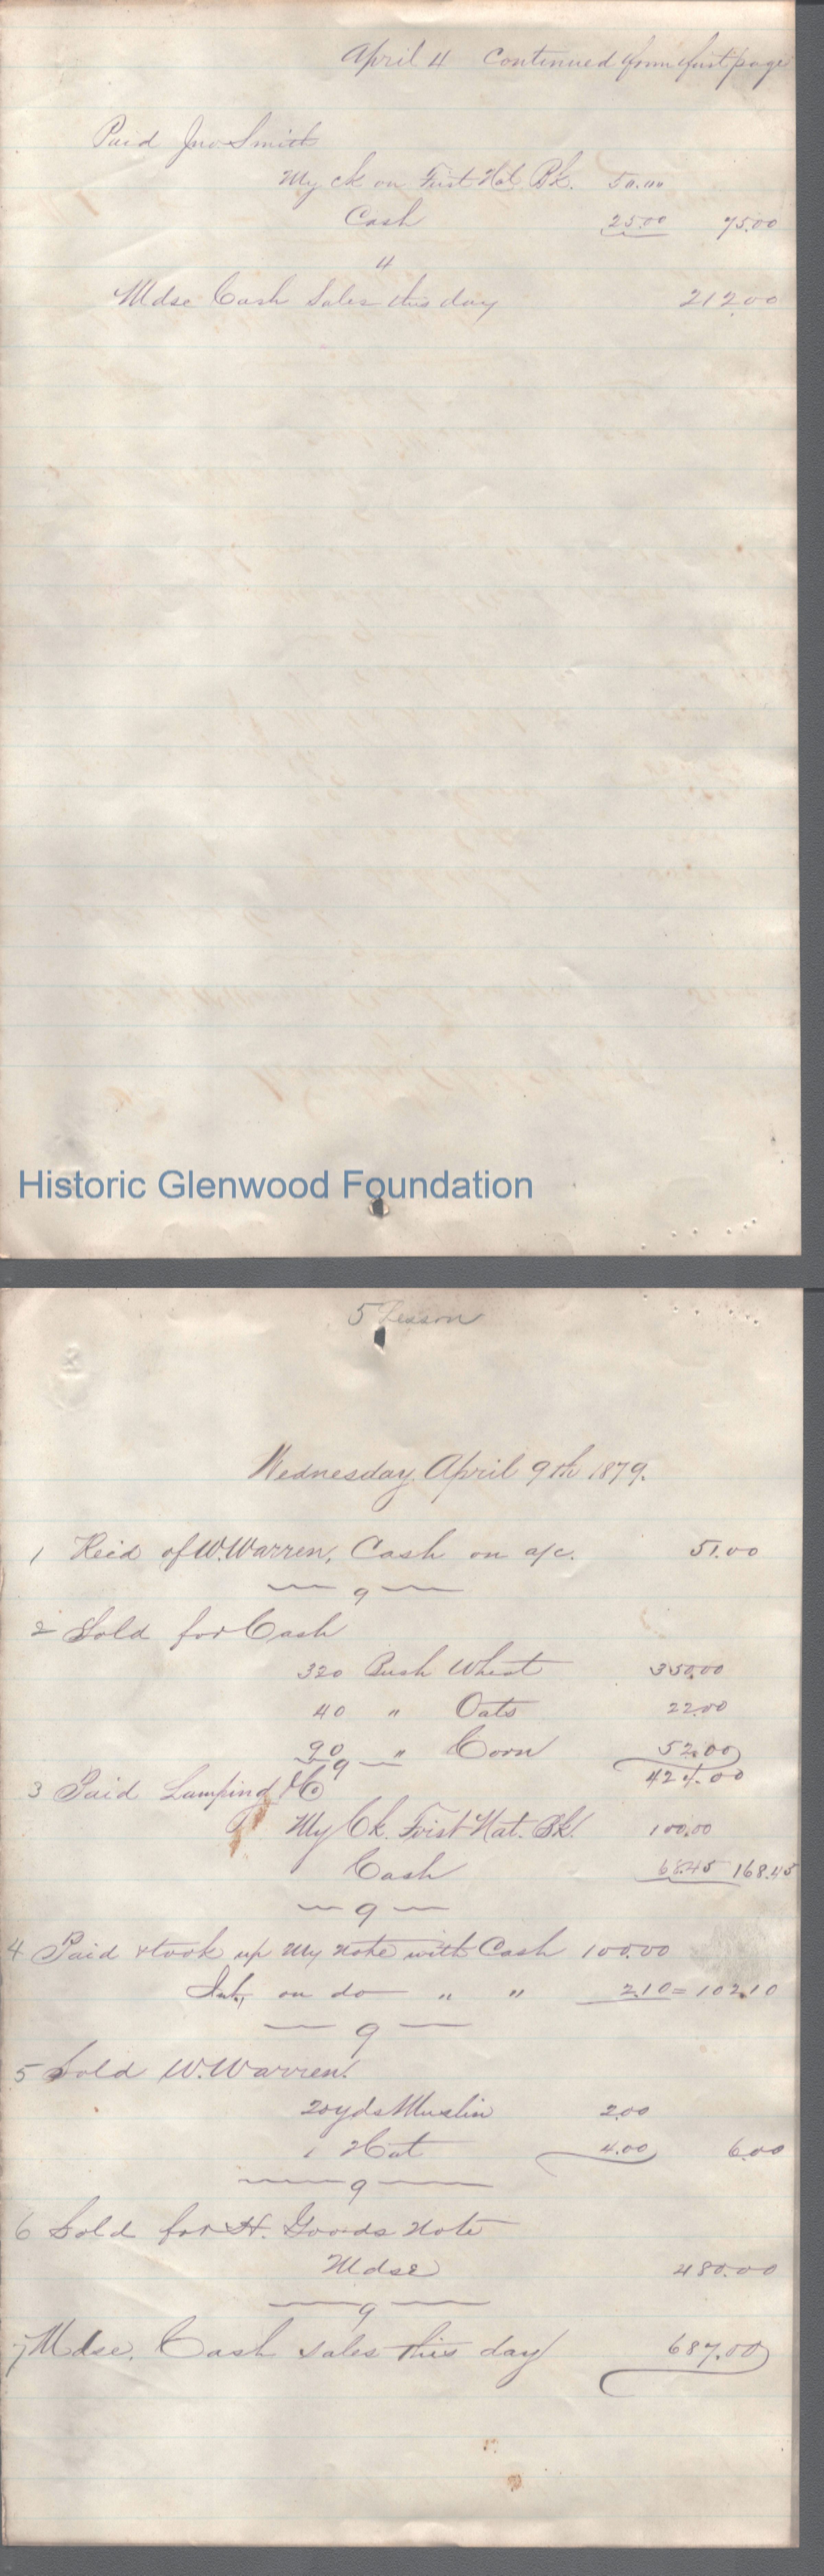 April 4 Continued from first page
Paid Jno Smith
My ck on First Nat Bk. 50.00
Cash 25.00 75.00
4
Mdse Cash Sales this day 212.00
Historic Glenwood Foundation
5 Lesson
Wednesday April 9th 1879.
1 Recd of W. Warren, Cash on a/c. 51.00
9
2 Sold for Cash
320 Bush Wheat 350.00
40 " Oats 22.00
90 " Corn 52.00
9 424.00
3 Paid Lamping & Co
My Ck. First Nat. Bk. 100.00
Cash 68.45 168.45
9
4 Paid & took up My Note with Cash 100.00
Int, on do " " 2.10 = 102.10
9
5 Sold W. Warren.
20 yds Muslin 2.00
1 Hat 4.00 6.00
9
6 Sold for H. Goods Note
Mdse 480.00
9
7 Mdse. Cash sales this day 687.00